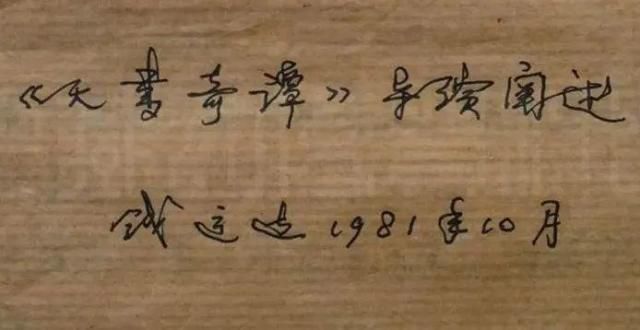 《天书奇谭》导演阐述
钱运达1981年10月